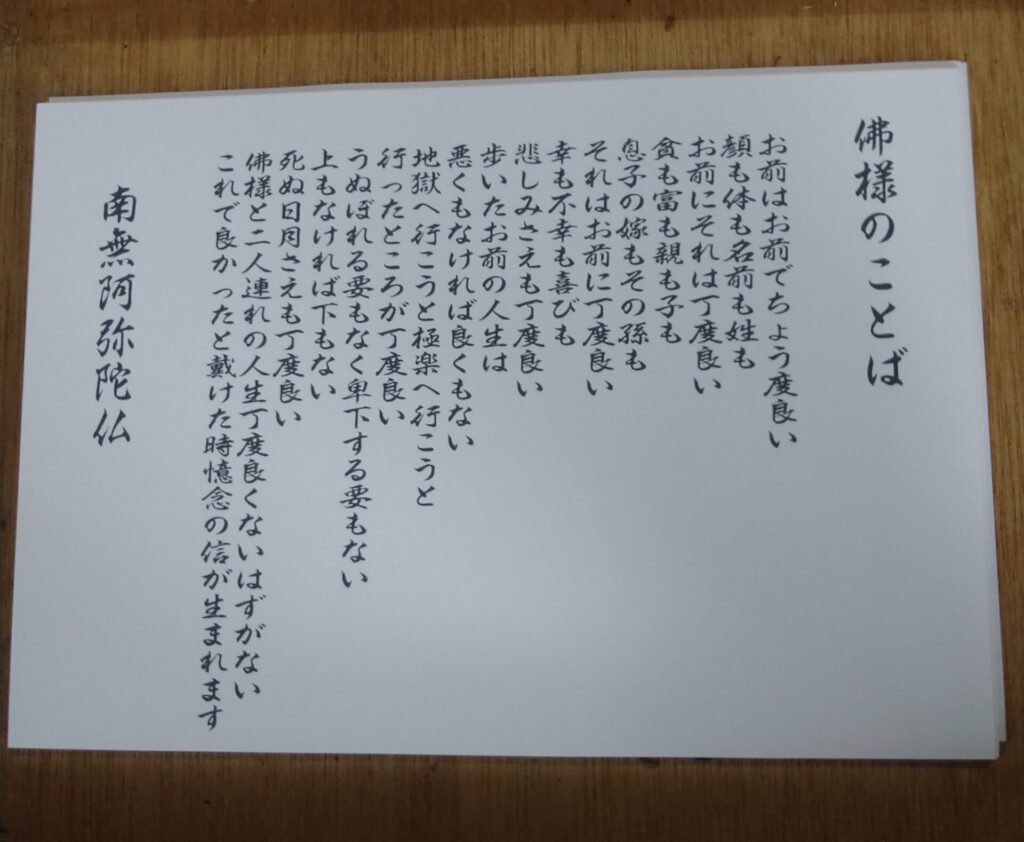 佛様のことば
お前はお前でちょう度良い
顔も体も名前も姓も
お前にそれは丁度良い
貧も富も親も子も
息子の嫁もその孫も
それはお前に丁度良い
幸も不幸も喜びも
悲しみさえも丁度良い
歩いたお前の人生は
悪くもなければ良くもない
地獄へ行こうと極楽へ行こうと
行ったところが丁度良い
うぬぼれる要もなく卑下する要もない
上もなければ下もない
死ぬ日月さえも丁度良い
佛様と二人連れの人生丁度良くないはずがない
これで良かったと戴けた時憶念の信が生まれます
南無阿弥陀仏